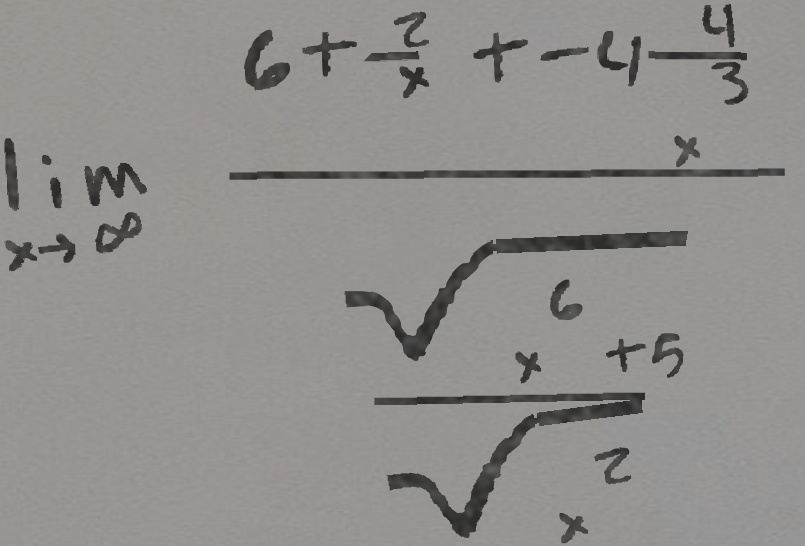 lim x→∞ (6 + 2/x + -4 4/x^3) / (√(x^6 + 5) / √(x^2))